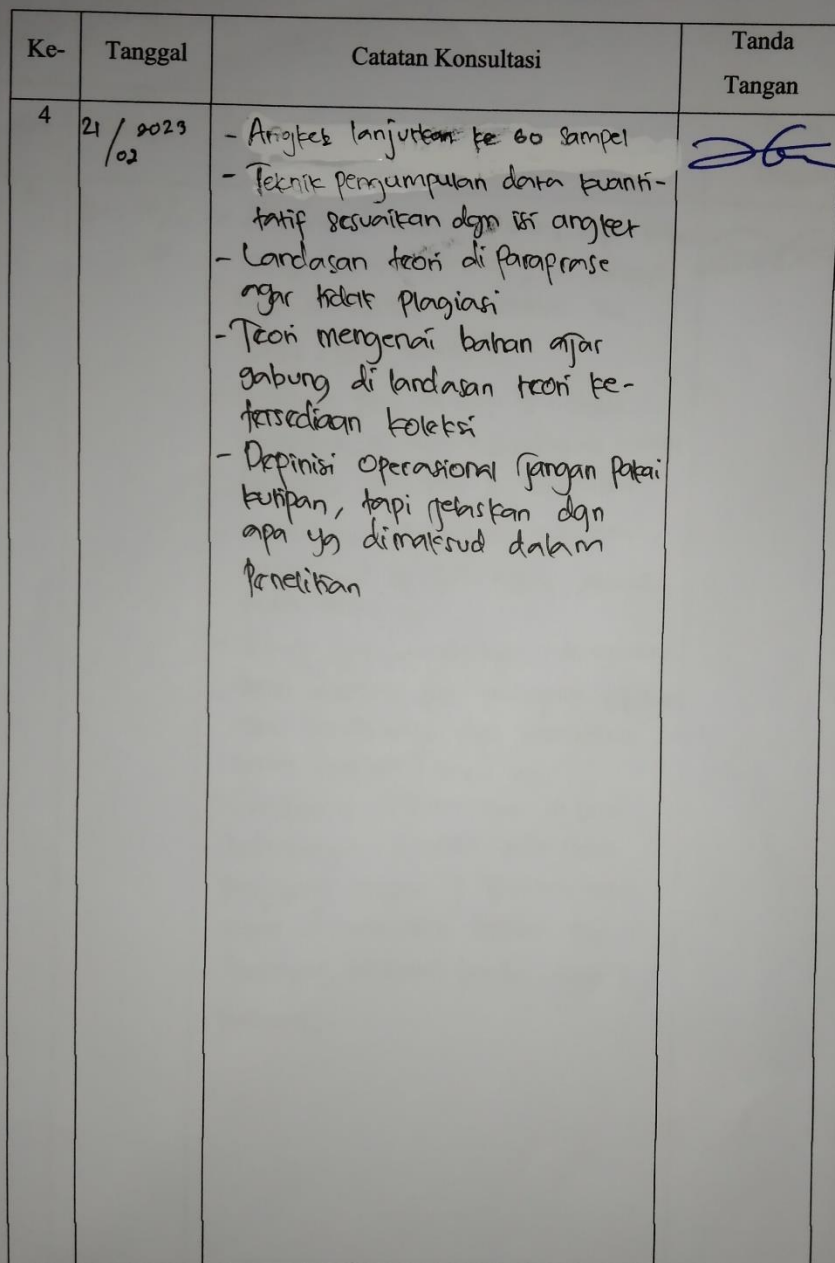 Ke-
Tanggal
Catatan Konsultasi
Tanda
Tangan
4
21/02 2023
- Angket lanjutkan ke 60 sampel
- Teknik pengumpulan data kuanti-
tatif sesuaikan dgn isi angket
- Landasan teori di Paraprase
agar tidak Plagiasi
- Teori mengenai bahan ajar
gabung di landasan teori ke-
tersediaan koleksi
- Depinisi Operasional jangan Pakai
kutipan, tapi jelaskan dgn
apa yg dimaksud dalam
Penelitian